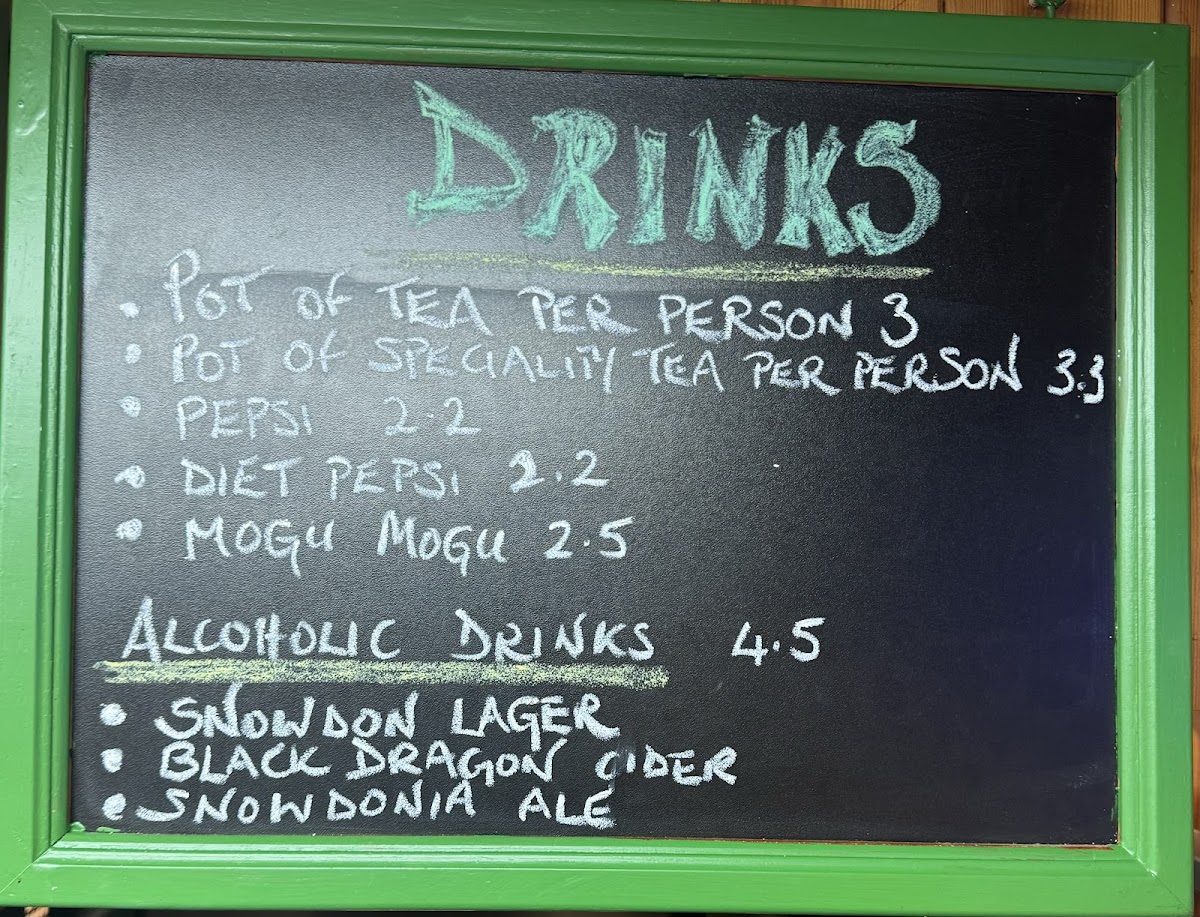 DRINKS
• POT OF TEA PER PERSON 3
• POT OF SPECIALITY TEA PER PERSON 3.3
• PEPSI 2.2
• DIET PEPSI 2.2
• MOGU MOGU 2.5
ALCOHOLIC DRINKS 4.5
• SNOWDON LAGER
• BLACK DRAGON CIDER
• SNOWDONIA ALE